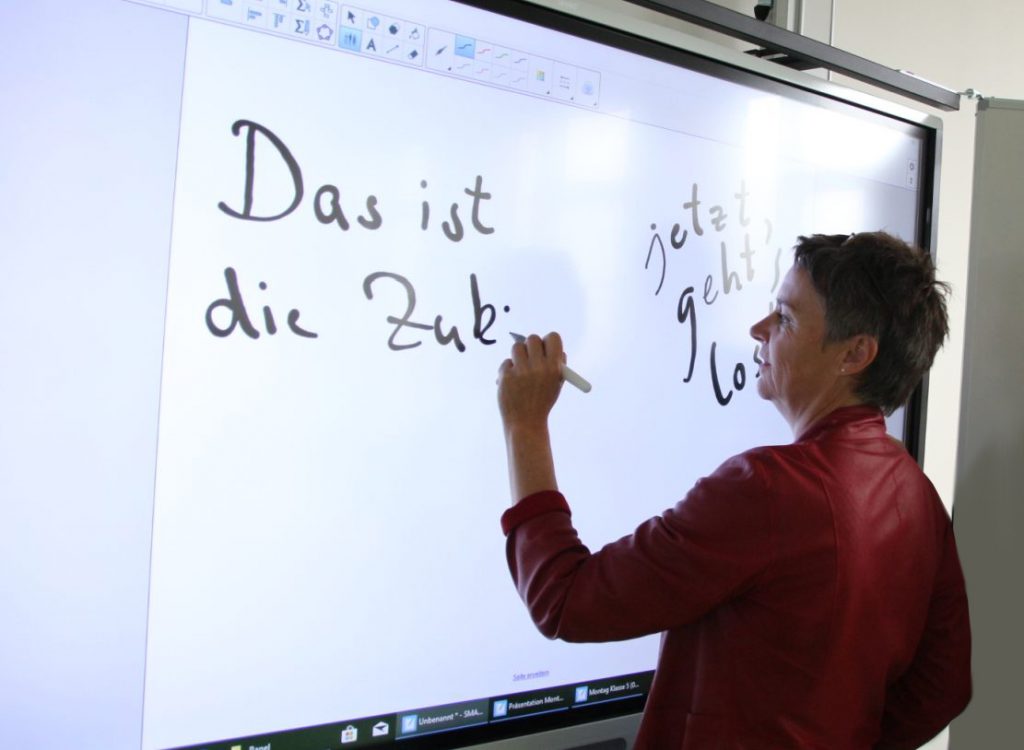 Das ist
die Zuk
jetzt
geht's
los
Seite erweitern
Unbenannt * - SMA...
Präsentation Mont...
Montag Klasse 3 (0...